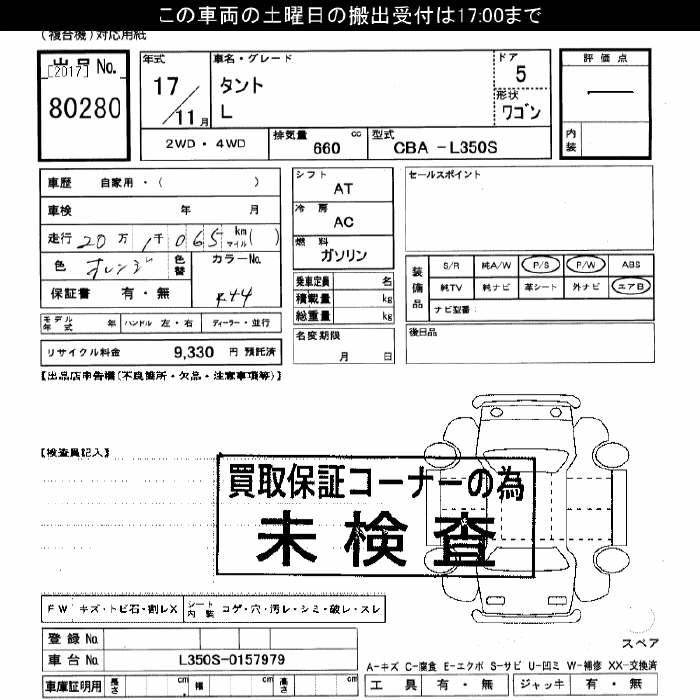 この車両の土曜日の搬出受付は17:00まで
(複合機)対応用紙
出品No.
[2017]
80280
年式
17/11月
車名・グレード
タント
L
ドア
5
形状
ワゴン
評価点
内装
2WD・4WD
排気量 660 cc
型式 CBA -L350S
車歴 自家用・( )
車検 年 月
走行 20万 1千065 km マイル( )
色 オレンジ
色替
カラーNo.
R44
保証書 有・無
モデル年式 年 ハンドル 左・右 ディーラー・並行
リサイクル料金 9,330 円 預託済
シフト
AT
冷房
AC
燃料
ガソリン
乗車定員 名
積載量 kg
総重量 kg
名変期限
月 日
セールスポイント
装備品
S/R 純A/W P/S P/W ABS
純TV 純ナビ 革シート 外ナビ エアB
ナビ型番:
後日品
【出品店申告欄(不良箇所・欠品・注意事項等)】
【検査員記入】
買取保証コーナーの為
未検査
FW キズ・トビ石・割レX シート内装 コゲ・穴・汚レ・シミ・破レ・スレ
登録No.
車台No. L350S-0157979
車庫証明用 長さ cm 幅 cm 高さ cm
スペア
A-キズ C-腐食 E-エクボ S-サビ U-凹ミ W-補修 XX-交換済
工具 有・無 ジャッキ 有・無